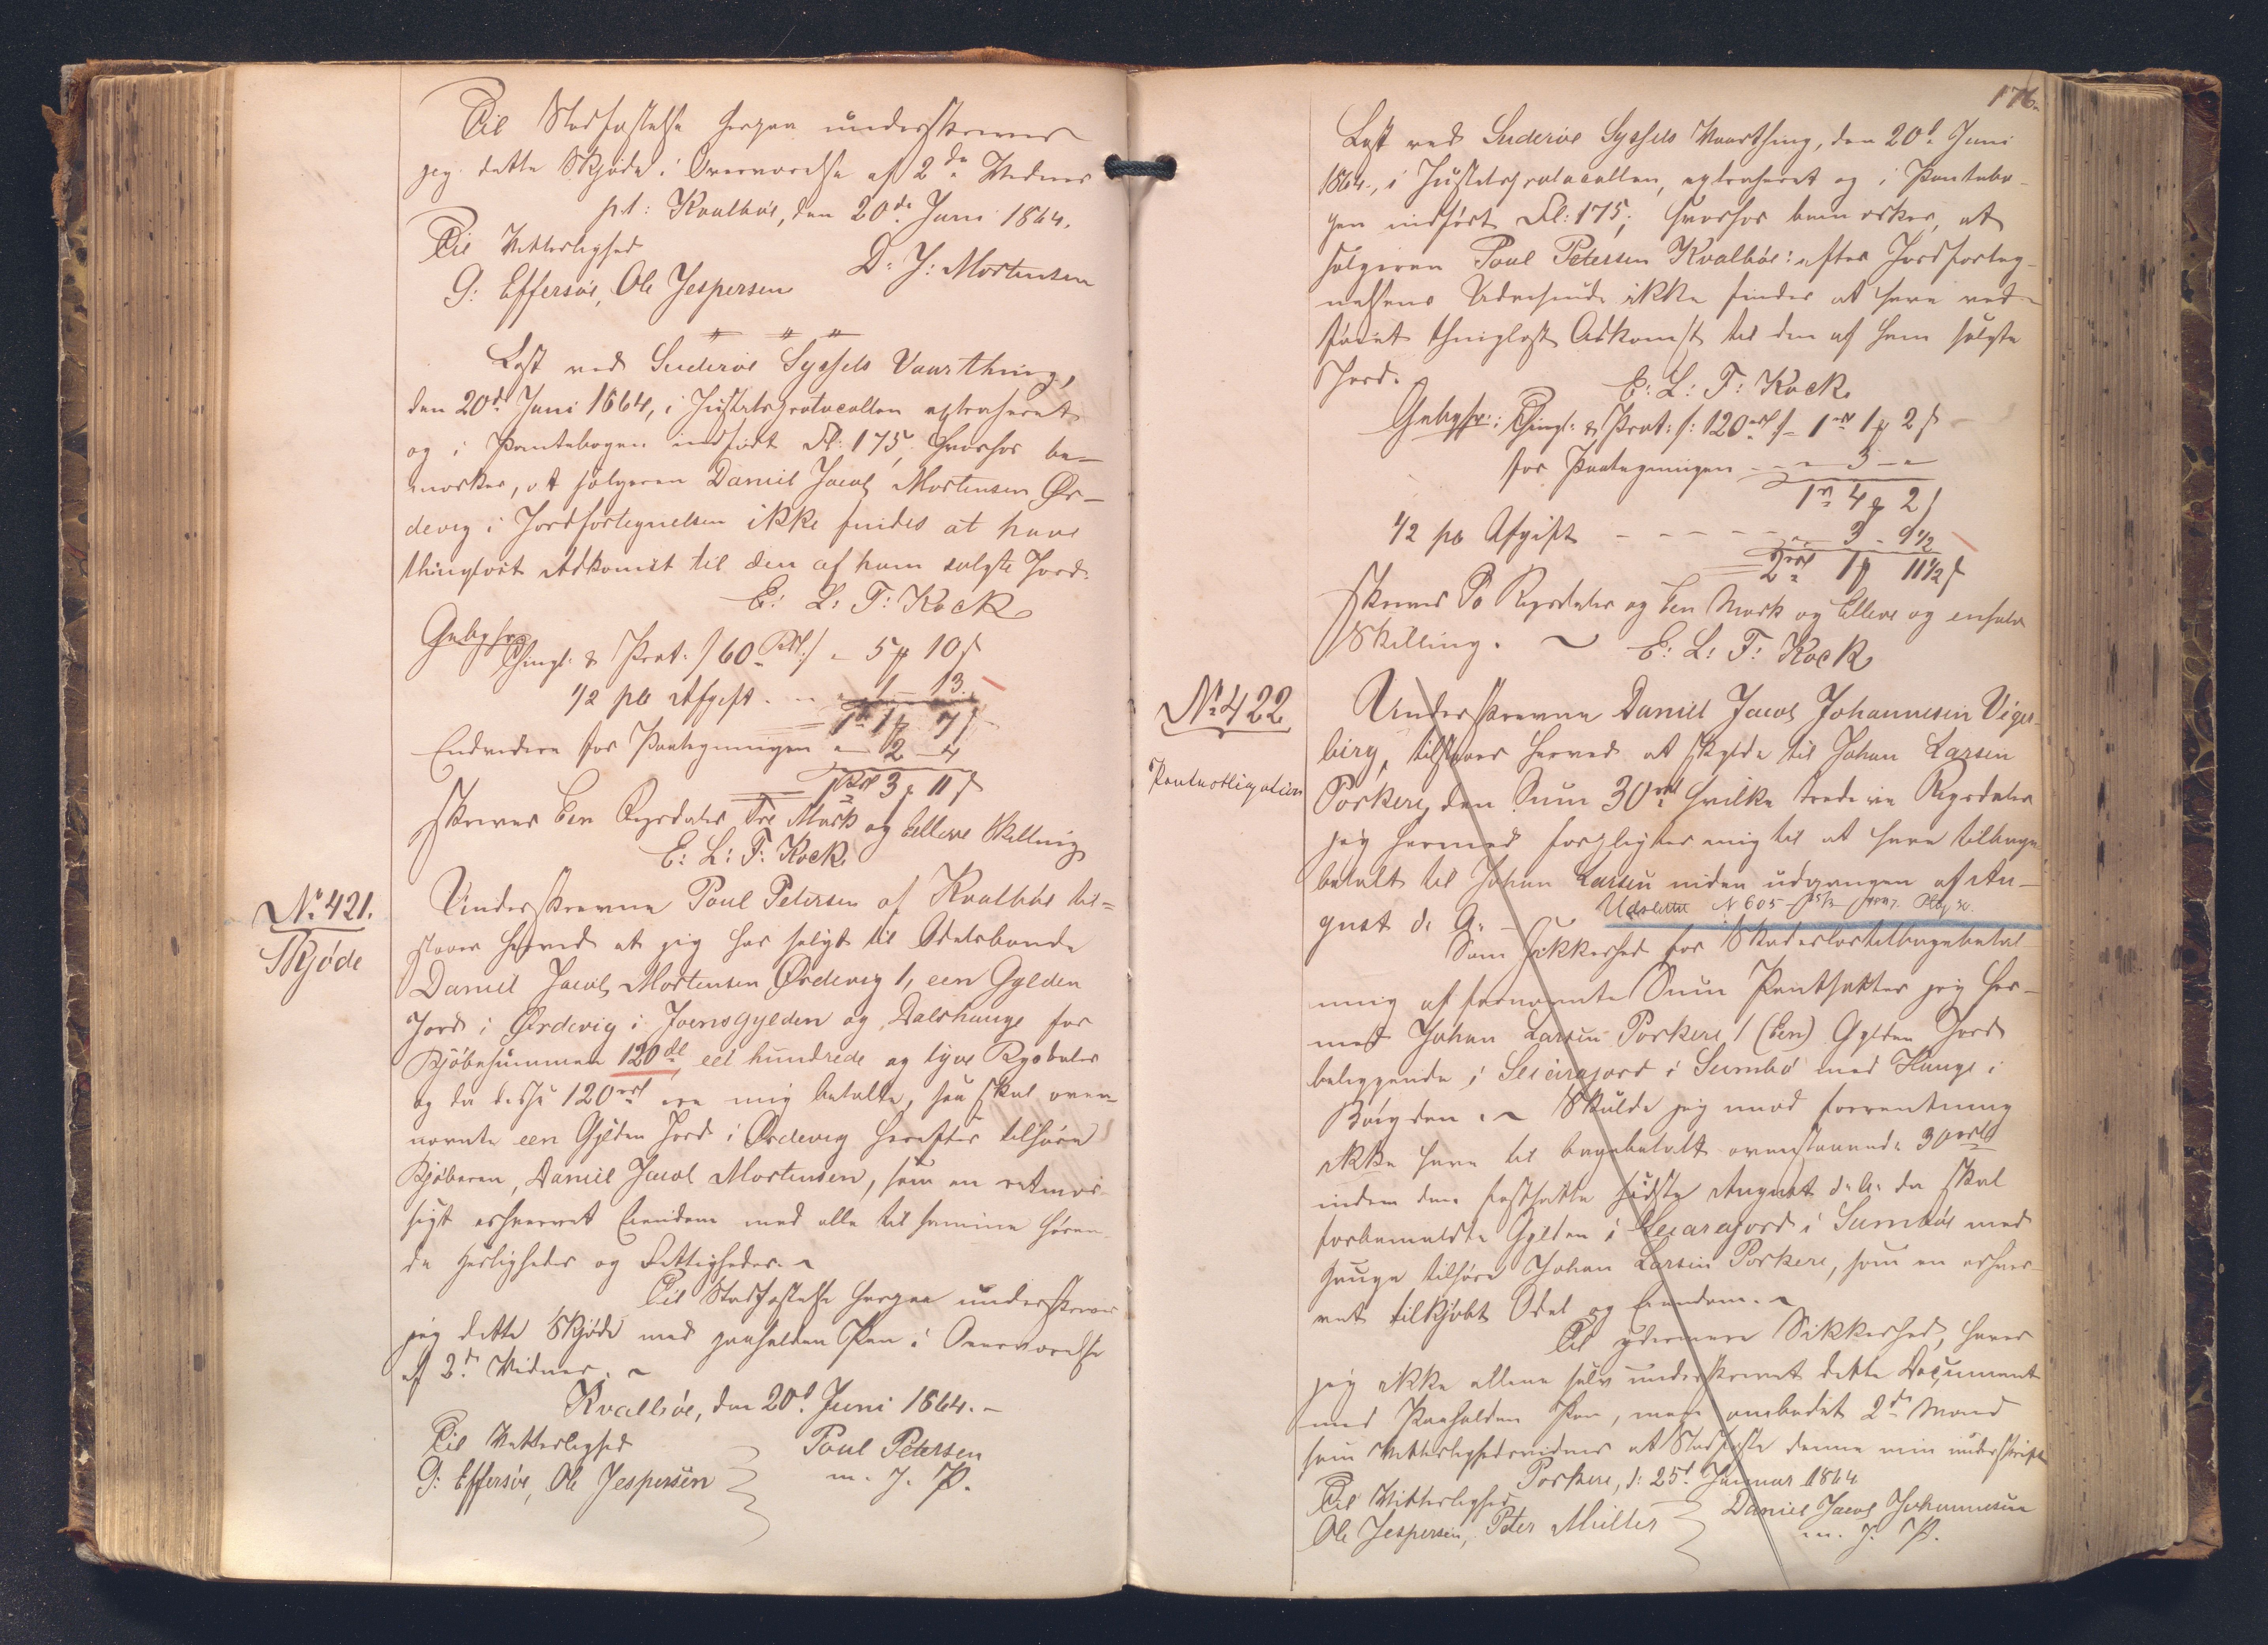 Til Stadfæstelse herpaa underskriver
jeg dette Skjøde i Overværelse af 2de Vidner
pt: Kvalbøe, den 20de Juni 1864.
Til Vitterlighed
D: J: Mortensen
G: Effersøe, Ole Jespersen
" " "
Læst ved Suderøe Syssels Vaarthing,
den 20d Juni 1864, i Justitsprotocollen extraheret
og i Pantebogen indført Fol: 175, hvorhos be-
mærkes, at sælgeren Daniel Jacob Mortensen Ør-
devig i Jordfortegnelsen ikke findes at have
thinglæst Adkomst til den af ham solgte Jord.
E: L: T: Kock
Gebyhr
Thingl: & Prot: /60 Rd:/ - 5 10
1/2 pC Afgift - 1 - 13
1 1 7
Endvidere for Paategningen - 2 - 4
1 Rd 3 11
skriver Een Rigsdaler Tre Mark og Elleve Skilling
E: L: T: Kock
No 421.
Skjøde
Underskrevne Poul Petersen af Kvalbøe til=
staaer herved at jeg har solgt til Odelsbonde
Daniel Jacob Mortensen Ørdevig 1, een Gylden
Jord i Ørdevig i Joensgylden og Dalshauge for
Kjøbesummen 120 dl eet hundrede og tyve Rigsdaler
og da disse 120 rd ere mig betalte, saa skal oven-
nævnte een Gylden Jord i Ørdevig herefter tilhøre
Kjøberen, Daniel Jacob Mortensen, som en retmæs-
sigt erhvervet Eiendom med alle til samme høren-
de Herligheder og Rettigheder. ~
Til Stadfæstelse herpaa underskriver
jeg dette Skjøde med paaholden Pen i Overværelse
af 2d Vidner. ~
Kvalbøe, den 20d Juni 1864. -
Til Vitterlighed
Poul Petersen
G: Effersøe, Ole Jespersen
m. f. P.
176.
Læst ved Suderøe Syssels Vaarthing, den 20d Juni
1864, i Justitsprotocollen, extraheret og i Pantebo-
gen indført Fol: 175; hvorhos bemærkes, at
sælgeren Poul Petersen Kvalbøe: efter Jordforteg-
nelsens Udvisende ikke findes at have ved-
ført thinglæst Adkomst til den af ham solgte
Jord.
E: L: T: Kock
Gebyhr: Thingl: & Prot: /: 120 rd / - 1 rd 1 2
for Paategningen - - 3 -
1 4 2
1/2 pC Afgift - - - - 3 - 9 1/2
2 rd 1 11 1/2
skriver To Rigsdaler og Een Mark og Elleve og en halv
Skilling. ~ E: L: T: Kock
No 422
Panteobligation
Underskrevne Daniel Jacob Johannesen Viges-
birg, tilstaaer herved at skylde til Johan Larsen
Porkere, den Sum 30 rd hvilke tredive Rigsdaler
jeg hermed forpligter mig til at have tilbage
betalt til Johan Larsen inden udgangen af Au-
gust d. A. -
Udslettet N 605
Som Sikkerhed for Skadesløstilbagebetal-
ning af fornævnte Sum Pantsætter jeg her-
med Johan Larsen Porkere 1 (Een) Gylden Jord
beliggende i Leirajord i Sumbø med Hauge i
Bøigden. ~ Skulde jeg mod forventning
ikke have til bagebetalt ovenstaaende 30 rd
inden den fastsatte sidste August d. A. da skal
forbemeldte Gylden i Leirajord i Sumbøe med
Hauge tilhøre Johan Larsen Porkere, som en erhver-
vet tilkjøbt Odel og Eiendom. ~
Til ydermere Sikkerhed, haver
jeg ikke allene selv underskrevet dette Document
med Paaholden Pen, men ombedet 2de Mænd
som Vitterlighedsvidner at Stadfæste denne min underskrift
Porkere, d: 25d Januar 1864
Til Vitterlighed
Daniel Jacob Johannesen
Ole Jespersen, Peter Müller
m. f. P.